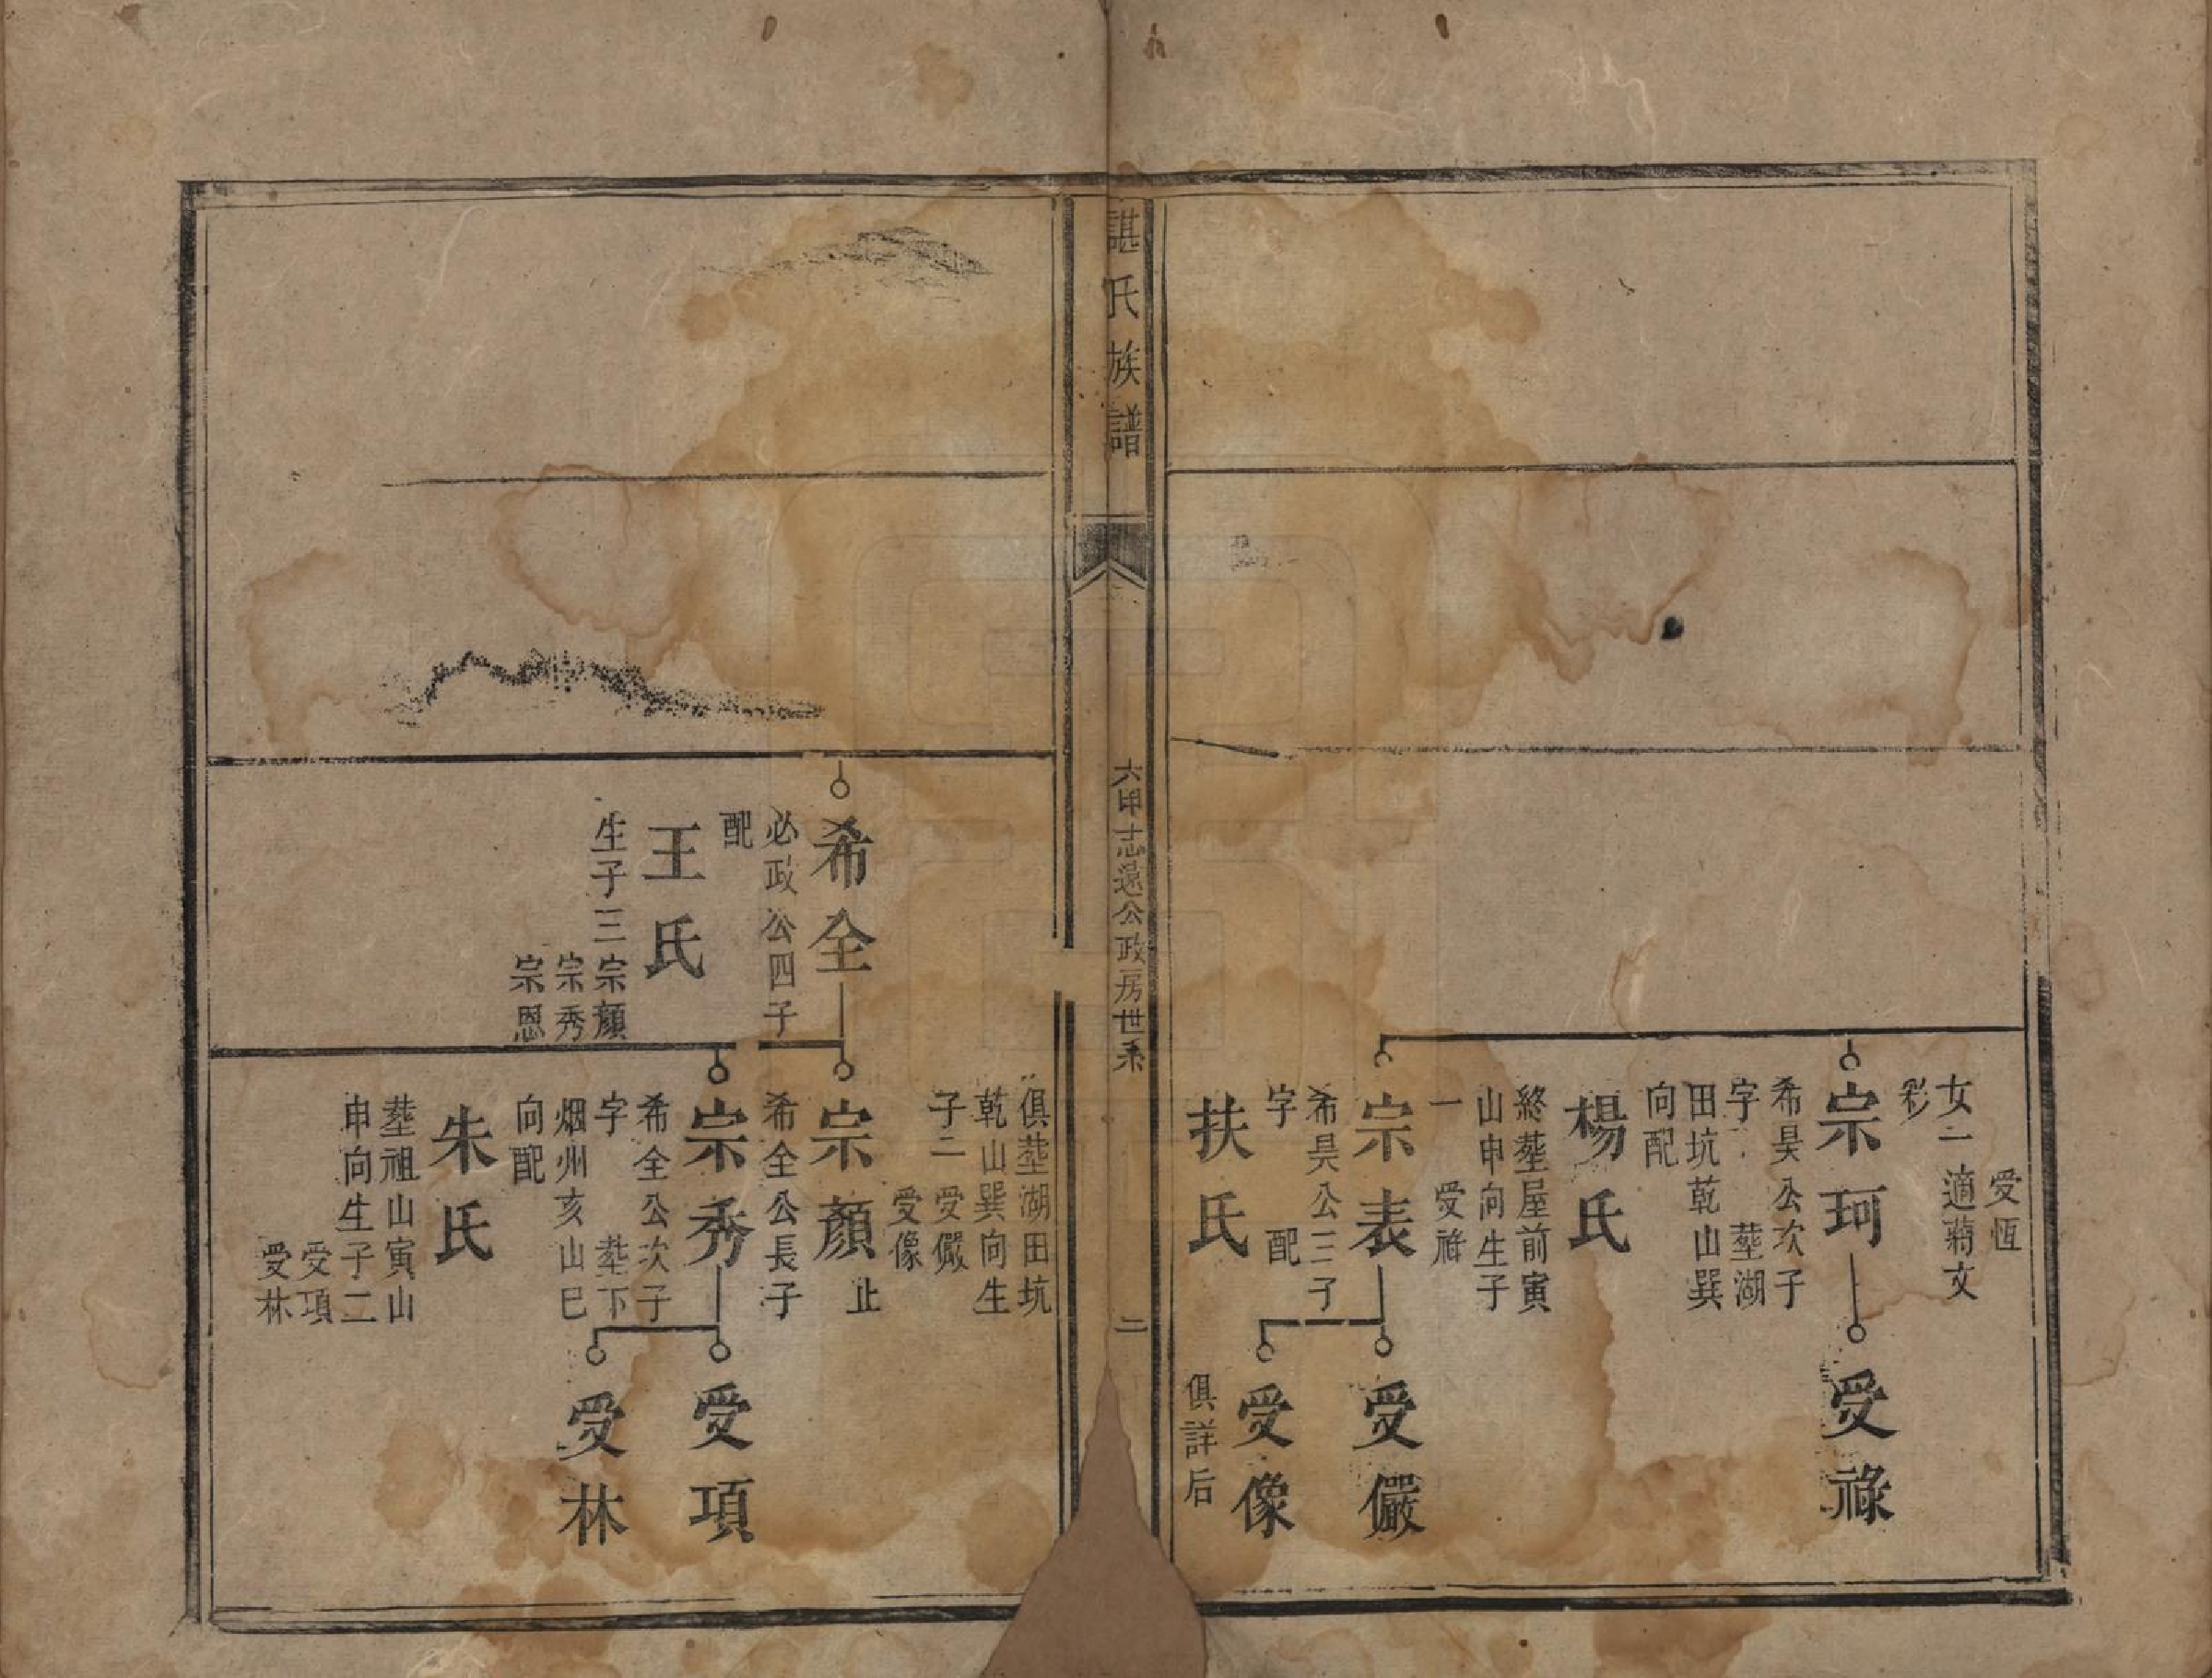 受恆
女一適蔣文
彩
宗珂
希昊公次子
字　塟湖
田坑乾山巽
向配
楊氏
終塟屋前寅
山申向生子
一　受祿
受祿
宗表
希昊公三子
字　配
扶氏
受儼
受像
俱詳后
諶氏族譜
六甲志遠公政房世系
二
俱塟湖田坑
乾山巽向生
子二　受儼
受像
希全
必政公四子
配
王氏
生子三宗顏
宗秀
宗恩
宗顏止
希全公長子
宗秀
希全公次子
字　塟下
烟州亥山巳
向配
朱氏
塟祖山寅山
申向生子二
受項
受林
受項
受林